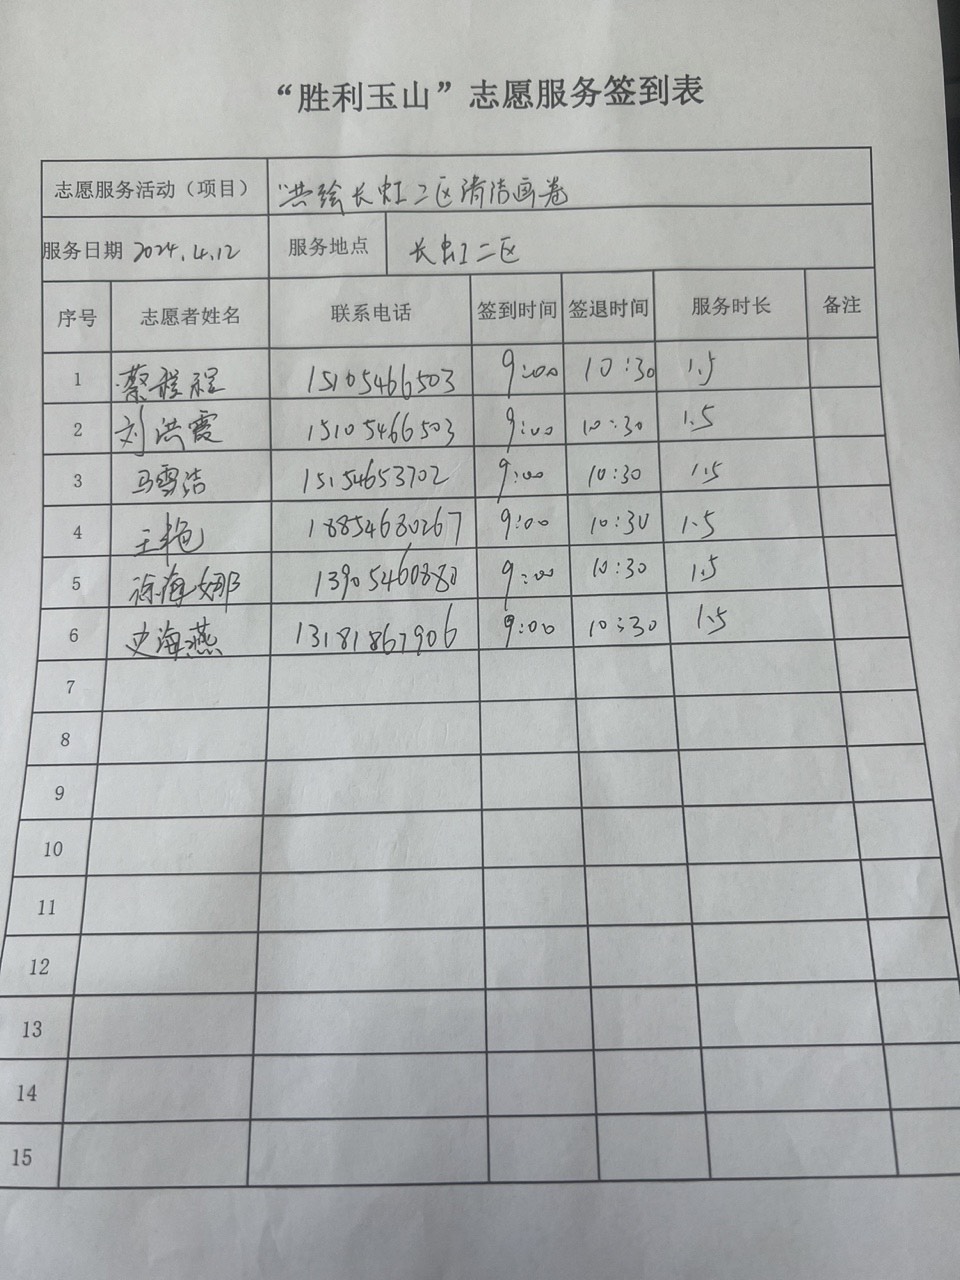 “胜利玉山”志愿服务签到表
志愿服务活动（项目） “共绘长虹二区清洁画卷
服务日期 2024.4.12 服务地点 长虹二区
序号 志愿者姓名 联系电话 签到时间 签退时间 服务时长 备注
1 蔡程程 15105466503 9:00 10:30 1.5
2 刘洪霞 15105466503 9:00 10:30 1.5
3 马雪洁 15154653702 9:00 10:30 1.5
4 王艳 18854680267 9:00 10:30 1.5
5 徐海娜 13905460880 9:00 10:30 1.5
6 史海燕 13181867906 9:00 10:30 1.5
7
8
9
10
11
12
13
14
15